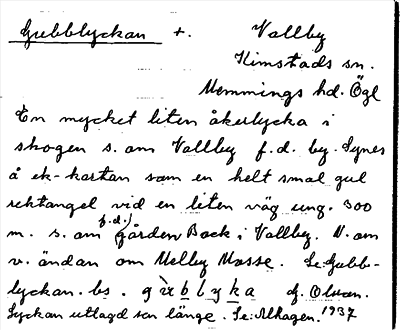 Gubblyckan +. Vallby
Kimstads sn.
Memmings hd. Ögl
En mycket liten åkerlycka i
skogen s. om Vallby f.d. by. Synes
å ek-kartan som en helt smal gul
rektangel vid en liten väg ung. 300
m. s. om (f.d.) gården Back i Vallby. N. om
v. ändan om Melby Mosse. Se: Gubb-
lyckan. bs. g b b l y k a af. Olsson.
Lyckan utlagd sen länge. Se: Alhagen. 1937